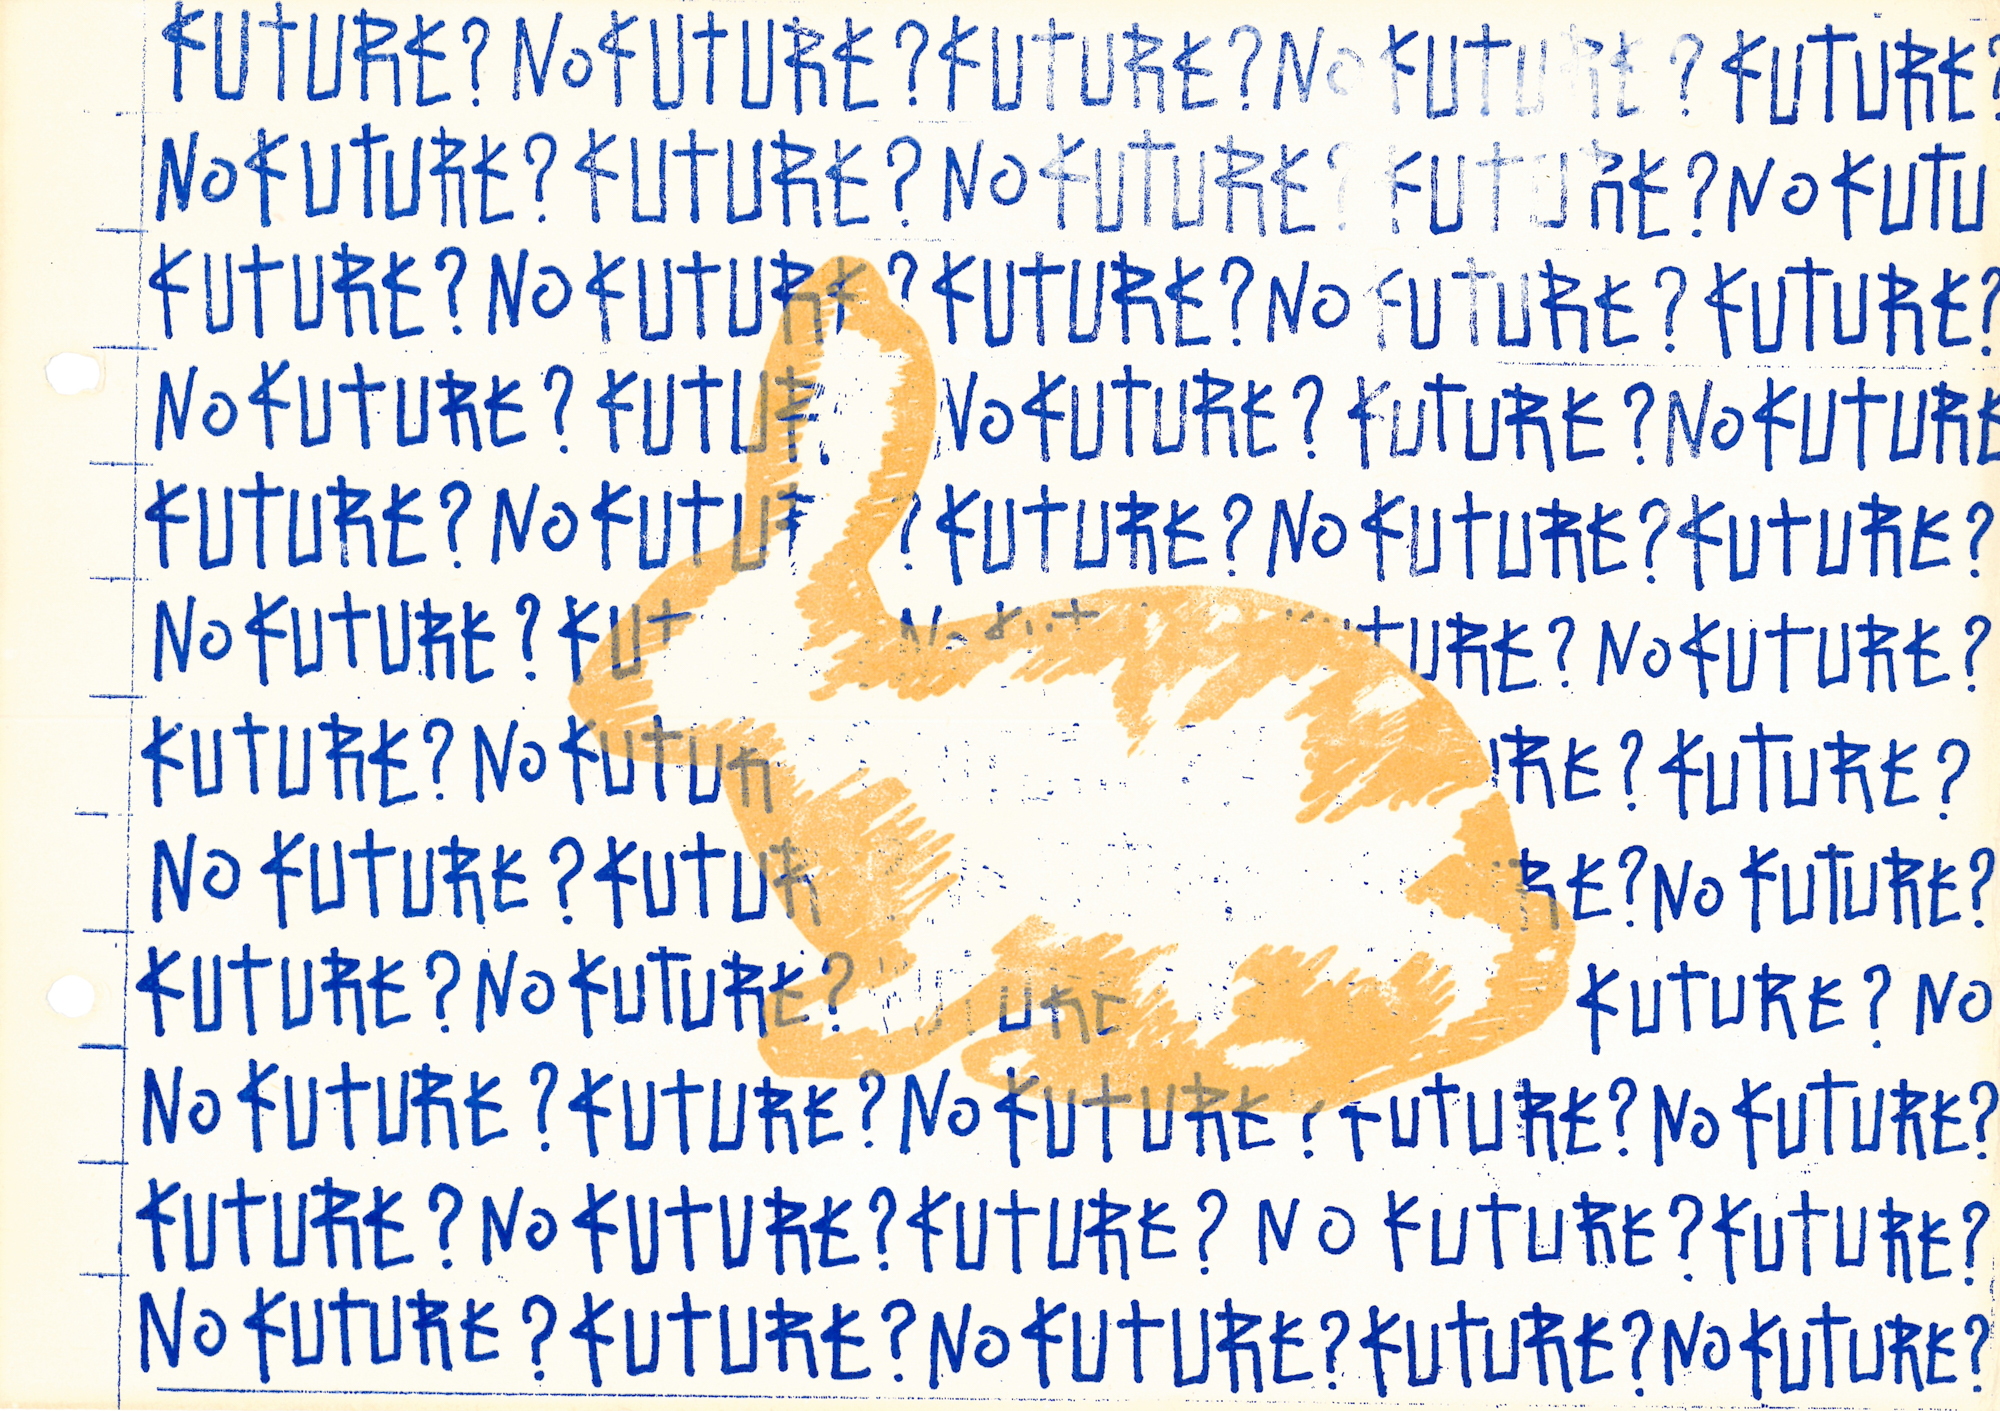 FUTURE? NO FUTURE? FUTURE? NO FUTURE? FUTURE?
NO FUTURE? FUTURE? NO FUTURE? FUTURE? NO FUTU
FUTURE? NO FUTURE? FUTURE? NO FUTURE? FUTURE?
NO FUTURE? FUTU NO FUTURE? FUTURE? NO FUTURE
FUTURE? NO FUTU ? FUTURE? NO FUTURE? FUTURE?
NO FUTURE? FUT NO FUT TURE? NO FUTURE?
FUTURE? NO FUTUR URE? FUTURE?
NO FUTURE? FUTUR RE? NO FUTURE?
FUTURE? NO FUTURE? URE FUTURE? NO
NO FUTURE? FUTURE? NO FUTURE? FUTURE? NO FUTURE?
FUTURE? NO FUTURE? FUTURE? NO FUTURE? FUTURE?
NO FUTURE? FUTURE? NO FUTURE? FUTURE? NO FUTURE?